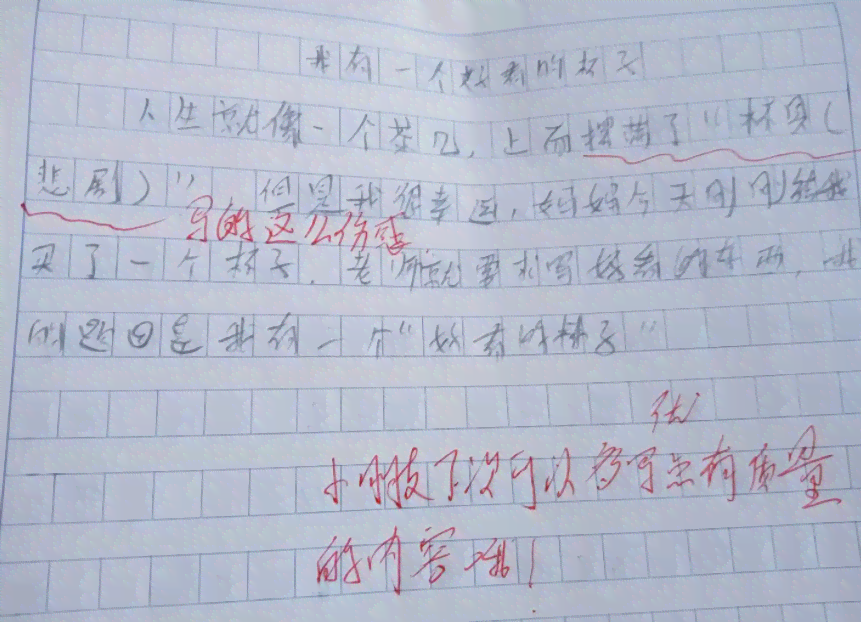 我有一个好看的杯子
人生就像一个茶几，上面摆满了“杯具(
悲剧)”但是我很幸运，妈妈今天刚刚给我
写的这么伤感
买了一个杯子，老师就要求写好看的东西，我
的题目是我有一个“好看的杯子”
优
下次可以多写点有质量
的内容哦！